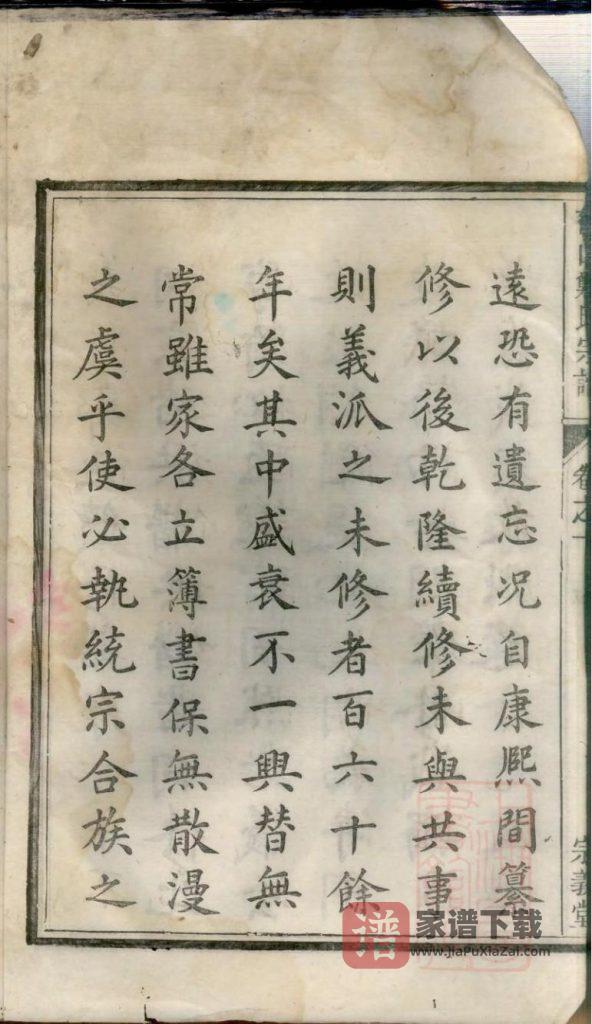 氏宗譜
卷之一
宗義堂
遠恐有遺忘況自康熈間纂
修以後乾隆續修未與共事
則義派之未修者百六十餘
年矣其中盛衰不一興替無
常雖家各立簿書保無散漫
之虞乎使必執統宗合族之
譜
家谱下载
www.JiaPuXiaZai.com